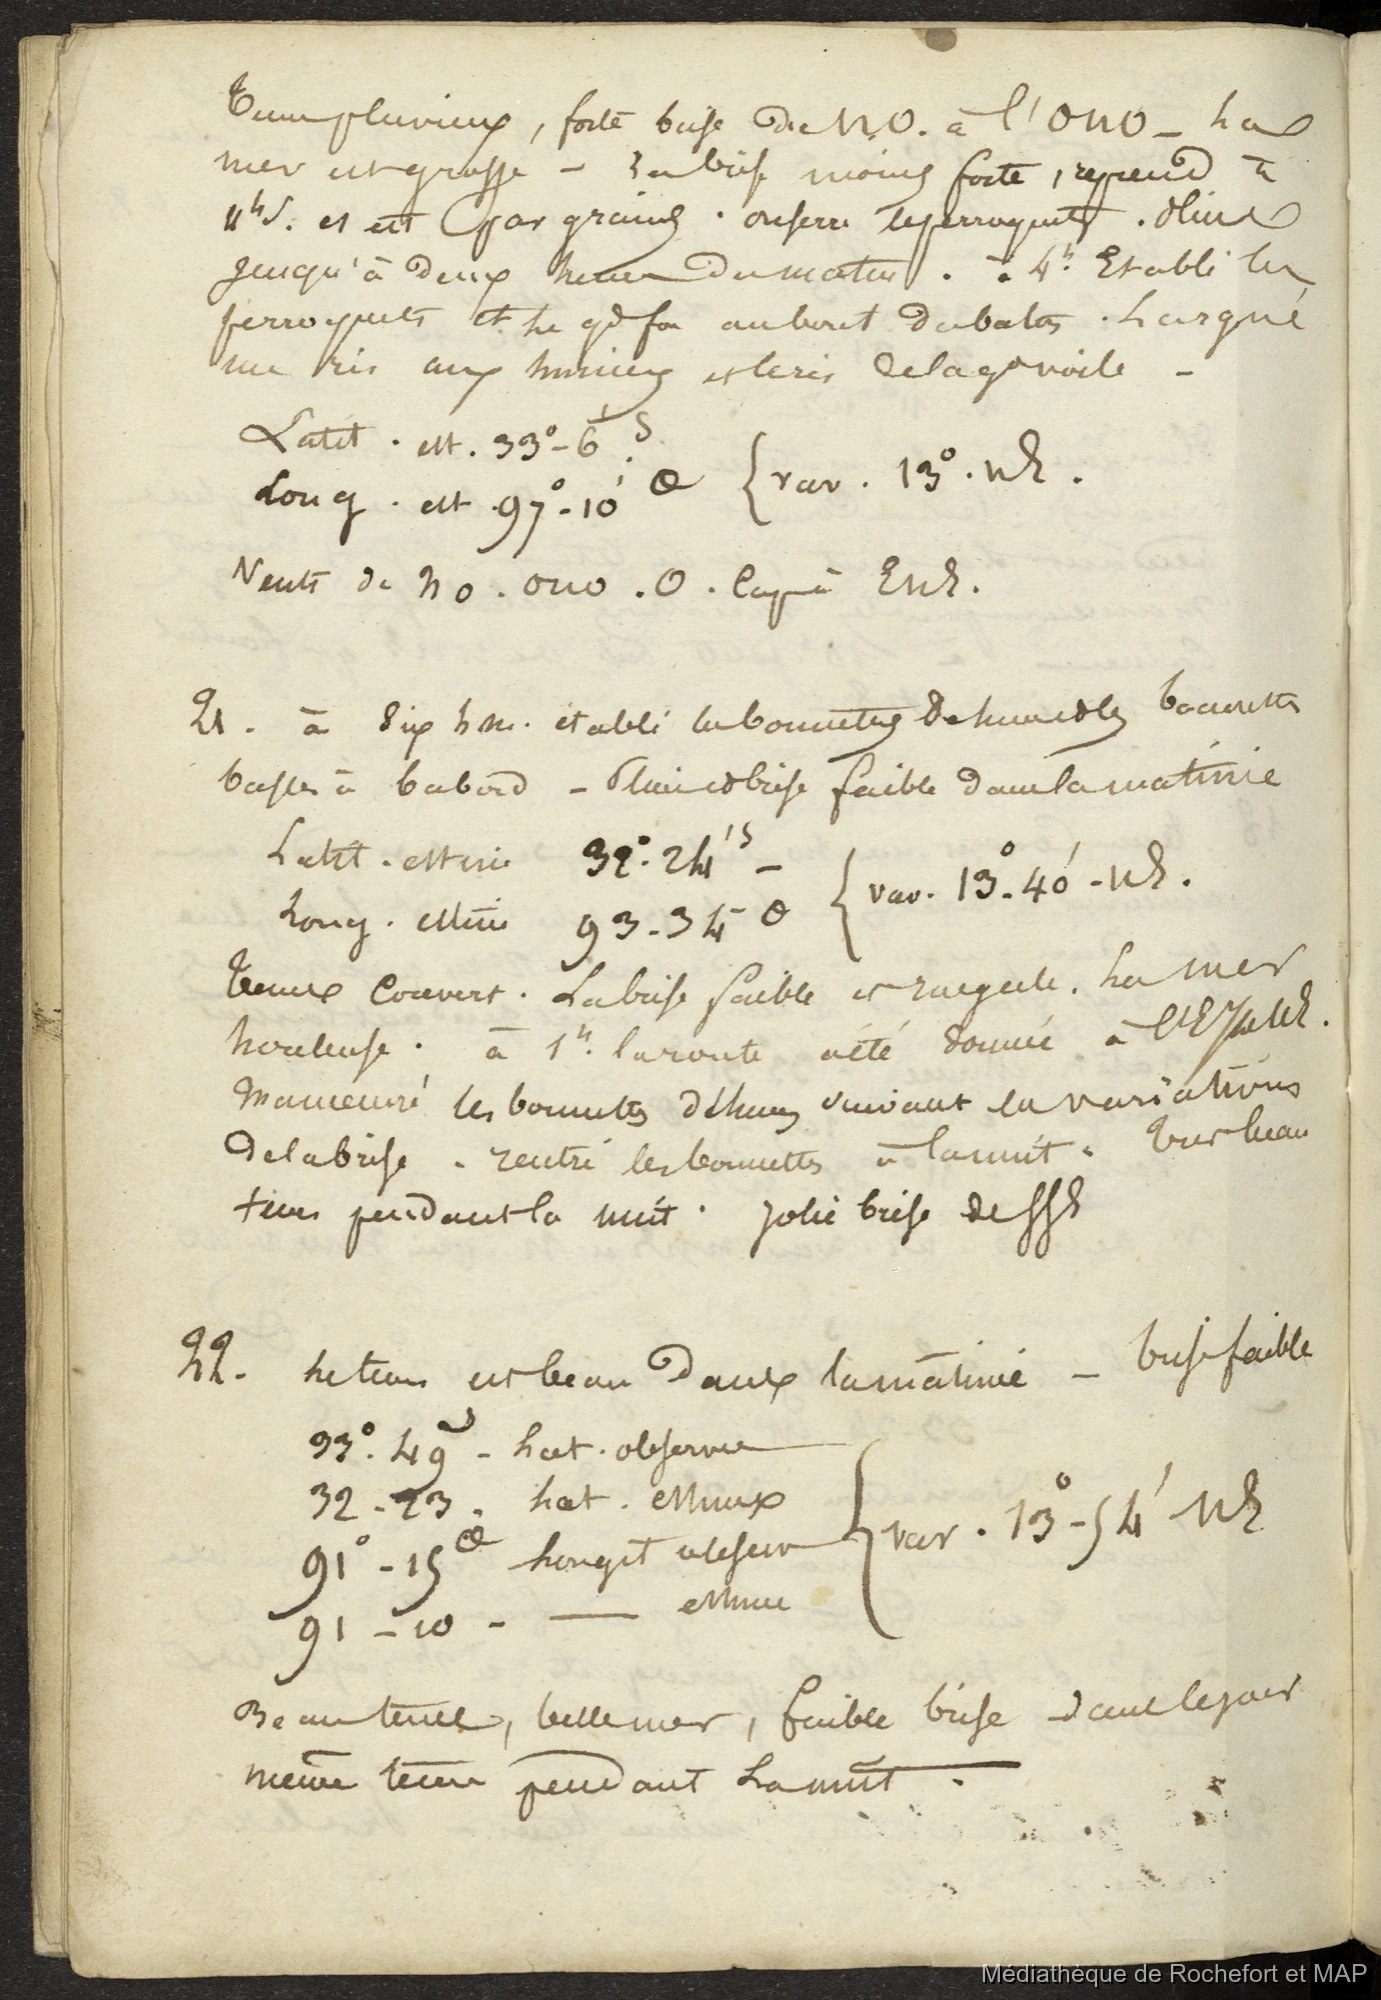 Tems pluvieux, forte brise du NO. à l'ONO _ La
mer est grosse _ La brise moins forte, reprend à
11h S. et est par grains. on serre les perroquets. Pluie
jusqu'à deux heures du matin. à 4h. Etabli les
perroquets et le gd foc au bout dehors. Largué
un ris aux huniers et le ris de la gde voile _
Latit. est. 33°-6' S
Long. est. 97°-10' O { var. 13°. NE.
Vents de NO. ONO. O. Cap à ENE.
21. à dix h m. établi les bonnettes de hune et les bonnettes
basses à babord _ Pluie et brise faible dans la matinée
Latit. estimée 32°.24' S _
Long. estimée 93-34 O { var. 13°-40' - NE.
Tems couvert. La brise faible et inégale. La mer
houleuse. à 1h. la route a été donnée à l'E
Manoeuvré les bonnettes de hune suivant les variations
de la brise. rentré les bonnettes à la nuit. Très beau
tems pendant la nuit. jolie brise de SSE
22. Le tems est beau dans la matinée _ brise faible
33°.49 S - Lat. observée
32-23. Lat. estimée
91°-15 O Longit observée { var. 13°-54' NE
91-10 - ___ estimée
Beau tems, belle mer, faible brise dans le jour
même tems pendant la nuit.
Médiathèque de Rochefort et MAP